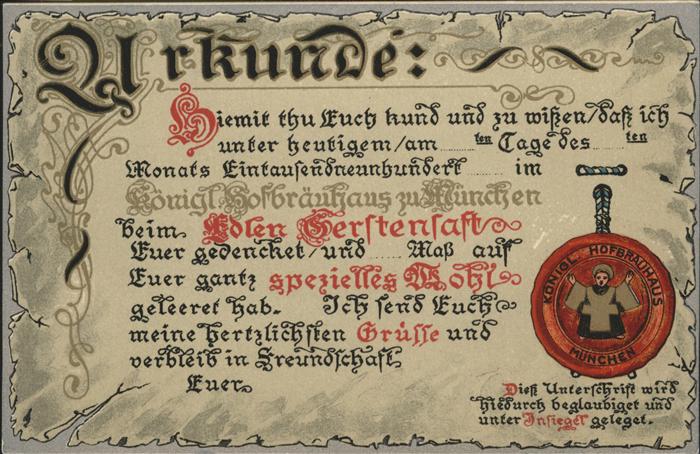 Urkunde:
Hiemit thu Euch kund und zu wißen/daß ich
unter heutigem/am ten Tage des ten
Monats Eintausendneunhundert ...... im
Königl. Hofbräuhaus zu München
beim Edlen Gerstensaft
Euer gedencket/und .... Maß auf
Euer gantz spezielles Wohl
geleeret hab. Ich send Euch
meine hertzlichsten Grüsse und
verbleib in Freundschaft
Euer
KÖNIGL. HOFBRÄUHAUS
MÜNCHEN
Dieß Unterschrift wird
hiedurch beglaubiget und
unter Insiegel geleget.